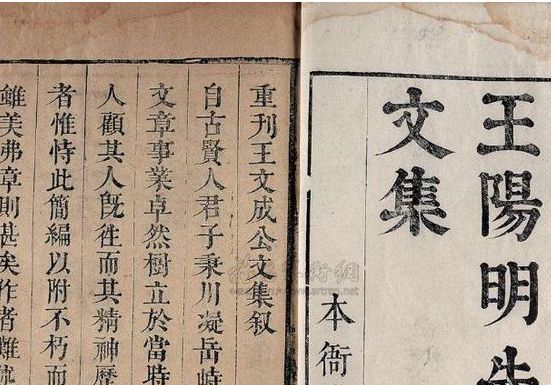 王陽明先
文集
本衙
重刊王文成公文集叙
自古賢人君子秉川凝岳峙
文章事業卓然樹立於當時
人顧其人旣徃而其精神歷
者惟恃此簡編以附不朽而
雖美弗章則甚矣作者難